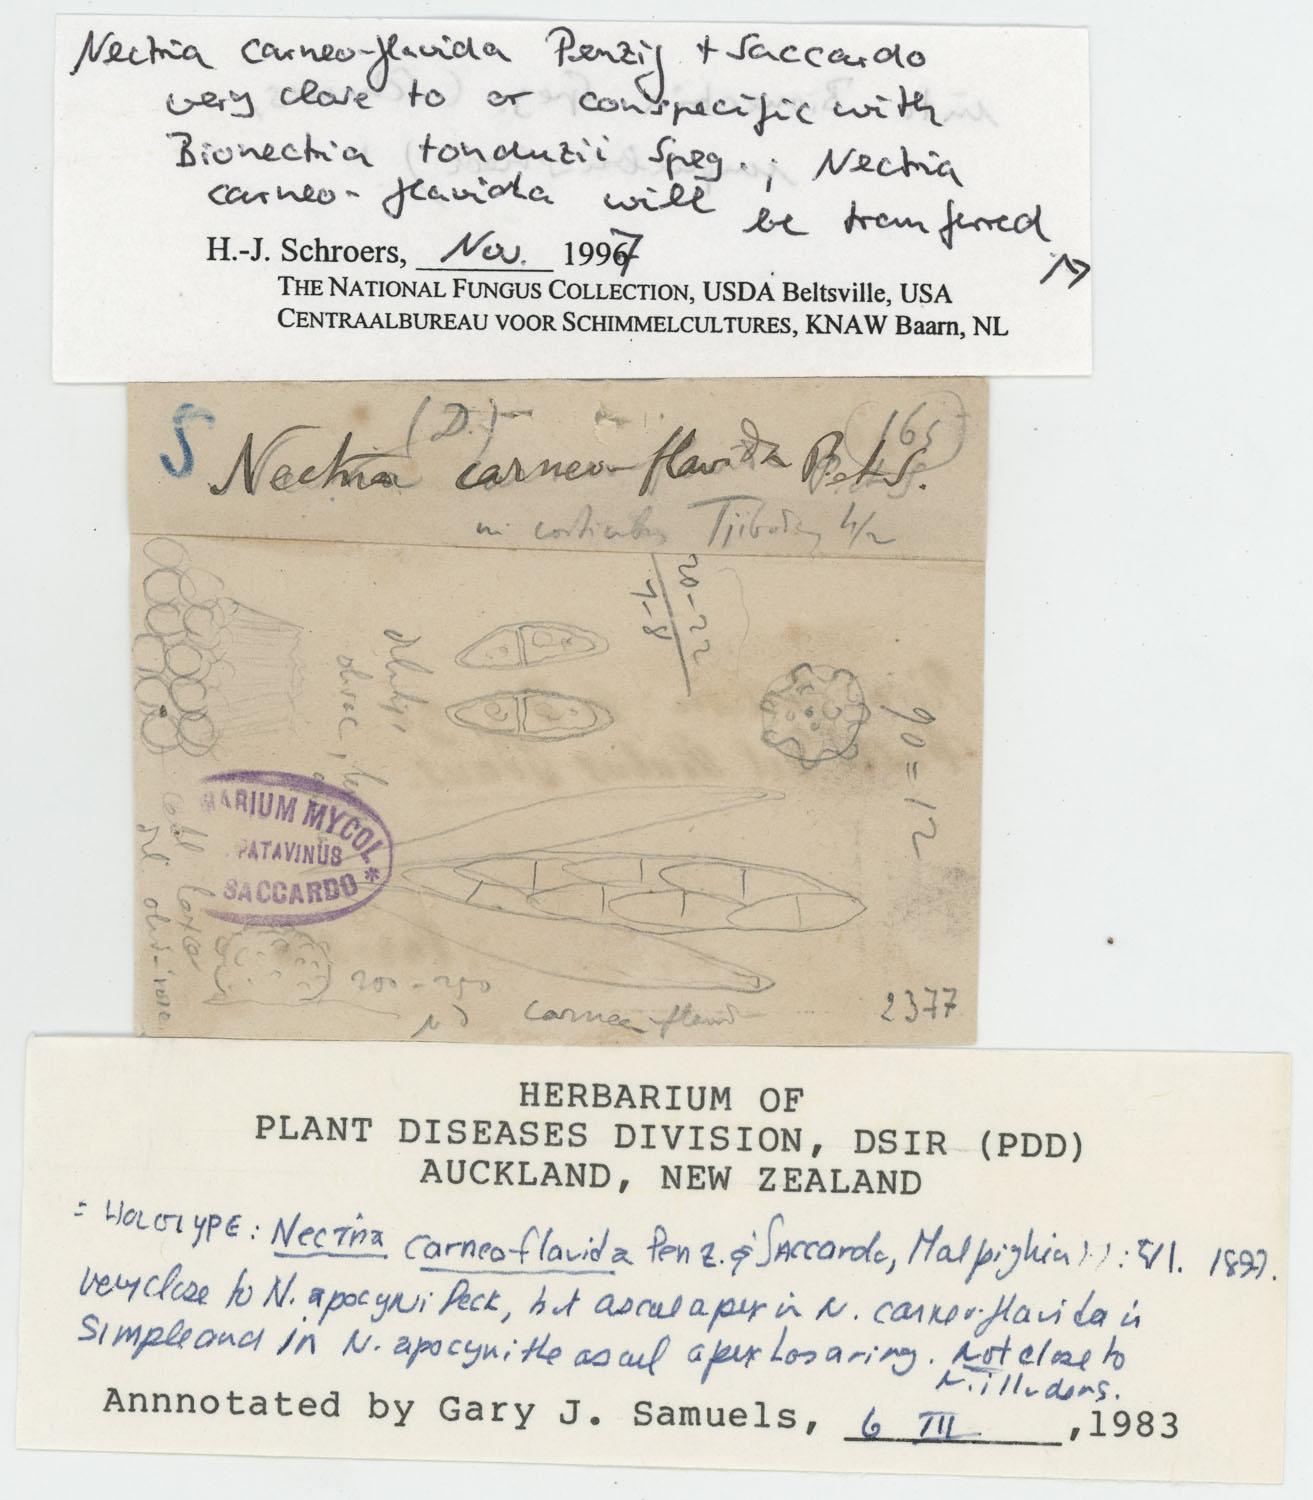 Nectria carneo-flavida Penzig + Saccardo
very close to or conspecific with
Bionectria tonduzii Speg.; Nectria
carneo-flavida will be transferred
H.-J. Schroers, Nov. 1997
THE NATIONAL FUNGUS COLLECTION, USDA Beltsville, USA
CENTRAALBUREAU VOOR SCHIMMELCULTURES, KNAW Baarn, NL
S
(D.)
165
Nectria carneo-flavida P. et S.
in corticibus Tjibodas 4/2
20-22
7-8
90=12
MARIUM MYCOL
PATAVINUS
SACCARDO *
200-250
carneo-flavid
2377
HERBARIUM OF
PLANT DISEASES DIVISION, DSIR (PDD)
AUCKLAND, NEW ZEALAND
= HOLOTYPE: Nectria carneoflavida Penz. & Saccardo, Malpighia 1897.
very close to N. apocyni Peck, but ascal apex in N. carneo-flavida is
simple and in N. apocyni the ascal apex has a ring. Not close to
N. illudens.
Annnotated by Gary J. Samuels, 6 III ,1983